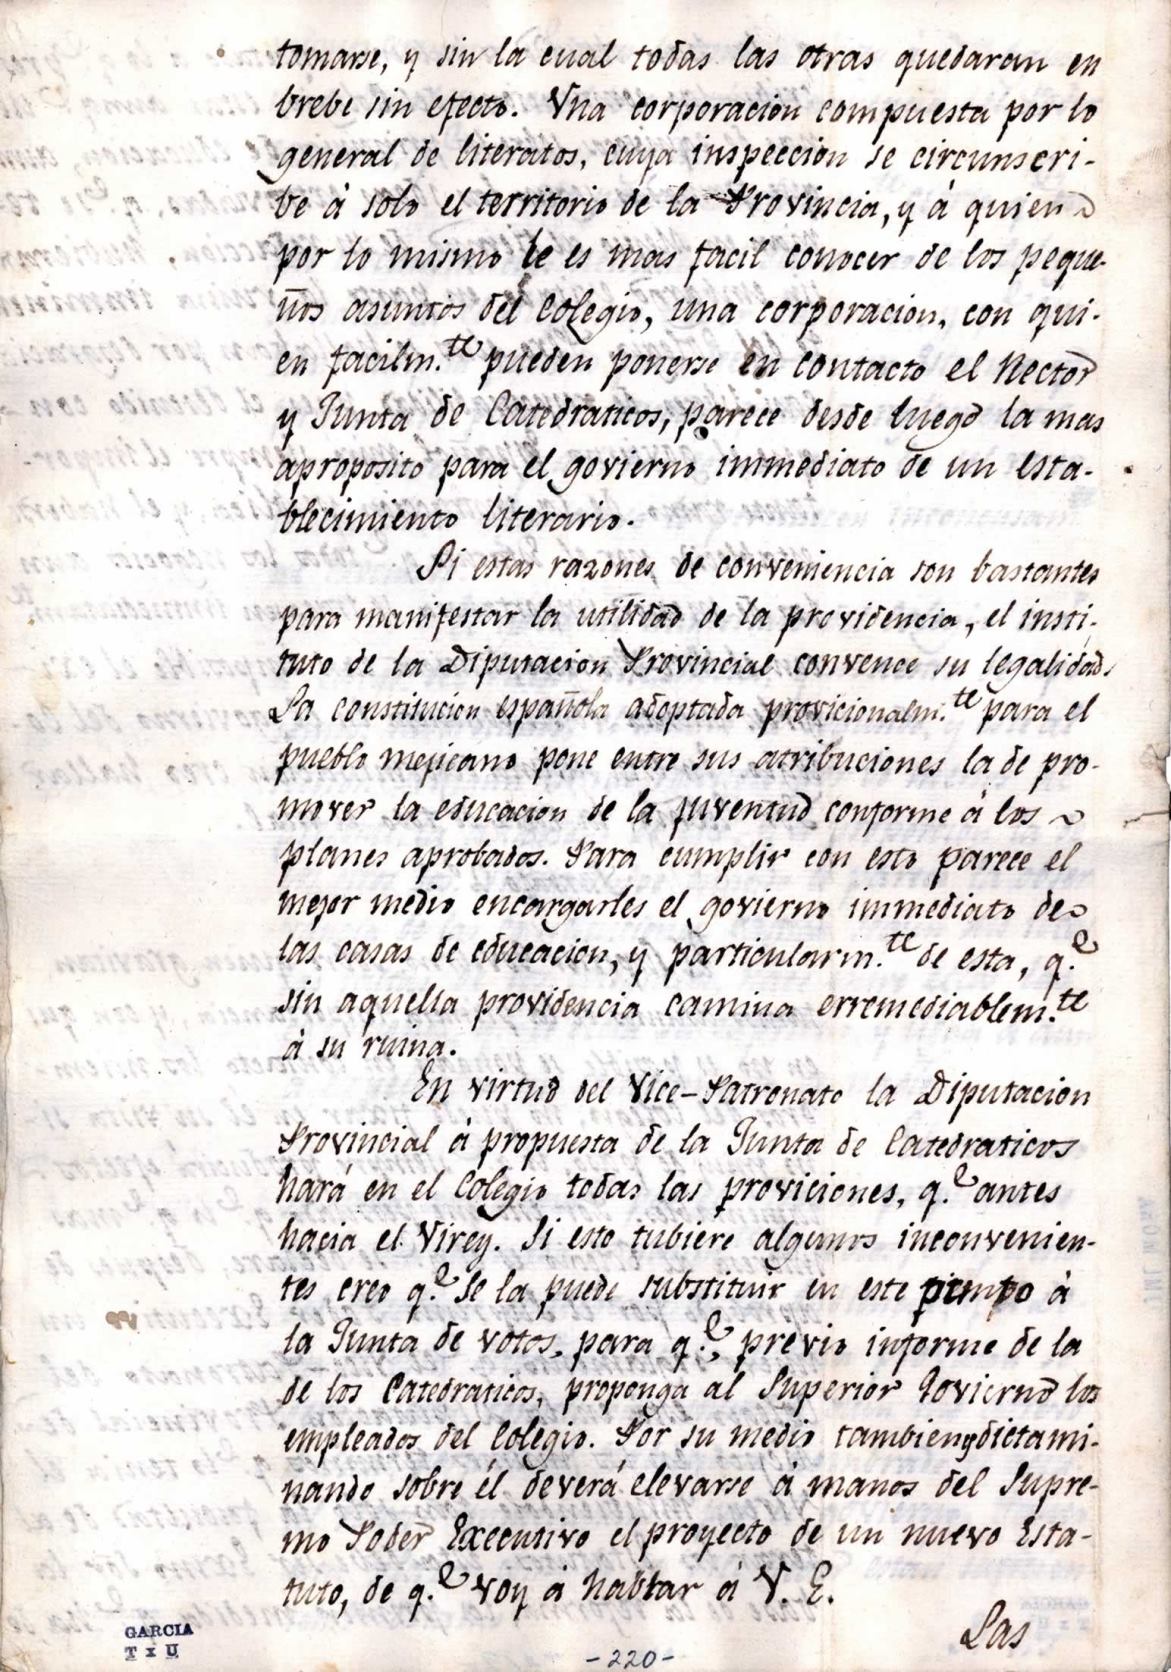 tomarse, y sin la cual todas las otras quedaran en
brebe sin efecto. Vna corporacion compuesta por lo
general de literatos, cuya inspeccion se circunscri-
be á solo el territorio de la Provincia, y á quien
por lo mismo le es mas facil conocer de los peque-
ños asuntos del Colegio, una corporacion, con qui-
en facilm.te pueden ponerse en contacto el Rector
y Junta de Catedraticos, parece desde luego la mas
aproposito para el govierno immediato de un esta-
blecimiento literario.
Si estas razones de conveniencia son bastantes
para manifestar la utilidad de la providencia, el insti-
tuto de la Diputacion Provincial convence su legalidad.
La constitucion española adoptada provicionalm.te para el
pueblo mejicano pone entre sus atribuciones la de pro-
mover la educacion de la juventud conforme á los
planes aprobados. Para cumplir con esto parece el
mejor medio encargarles el govierno immediato de
las casas de educacion, y particularm.te de esta, q.e
sin aquella providencia camina erremediablem.te
á su ruina.
En virtud del Vice-Patronato la Diputacion
Provincial á propuesta de la Junta de Catedraticos
hará en el Colegio todas las proviciones, q.e antes
hacia el Virey. Si esto tubiere algunos inconvenien-
tes creo q.e se la puede substituir en este punto á
la Junta de votos, para q.e, previo informe de la
de los Catedraticos, proponga al Superior Govierno los
empleados del Colegio. Por su medio tambien y dictami-
nando sobre él deverá elevarse á manos del Supre-
mo Poder Executivo el proyecto de un nuevo Esta-
tuto, de q.e voy á hablar á V. E.
Las
GARCIA
T x U
-220-